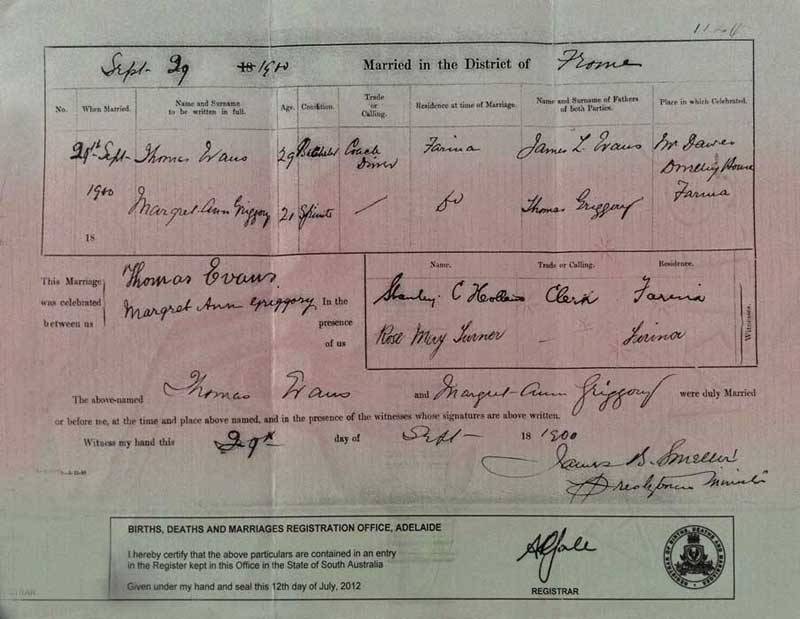 Sept 29 18 1900 Married in the District of Frome
No. When Married. Name and Surname to be written in full. Age. Condition. Trade or Calling. Residence at time of Marriage. Name and Surname of Fathers of both Parties. Place in which Celebrated.
29th Sept Thomas Evans 29 Bachelor Coach Driver Farina James L. Evans Mr Dawes Dwelling House Farina
1900 Margret Ann Griggory 21 Spinster Do Thomas Griggory
18
This Marriage was celebrated between us
Thomas Evans
Margret Ann Griggory
In the presence of us
Name. Trade or Calling. Residence.
Stanley C Clerk Farina
Rose May Turner — Farina
Witnesses.
The above-named Thomas Evans and Margret Ann Griggory were duly Married
or before me, at the time and place above named, and in the presence of the witnesses whose signatures are above written.
Witness my hand this 29th day of Sept 18 1900
James B.
Minister
BIRTHS, DEATHS AND MARRIAGES REGISTRATION OFFICE, ADELAIDE
I hereby certify that the above particulars are contained in an entry
in the Register kept in this Office in the State of South Australia
Given under my hand and seal this 12th day of July, 2012
REGISTRAR